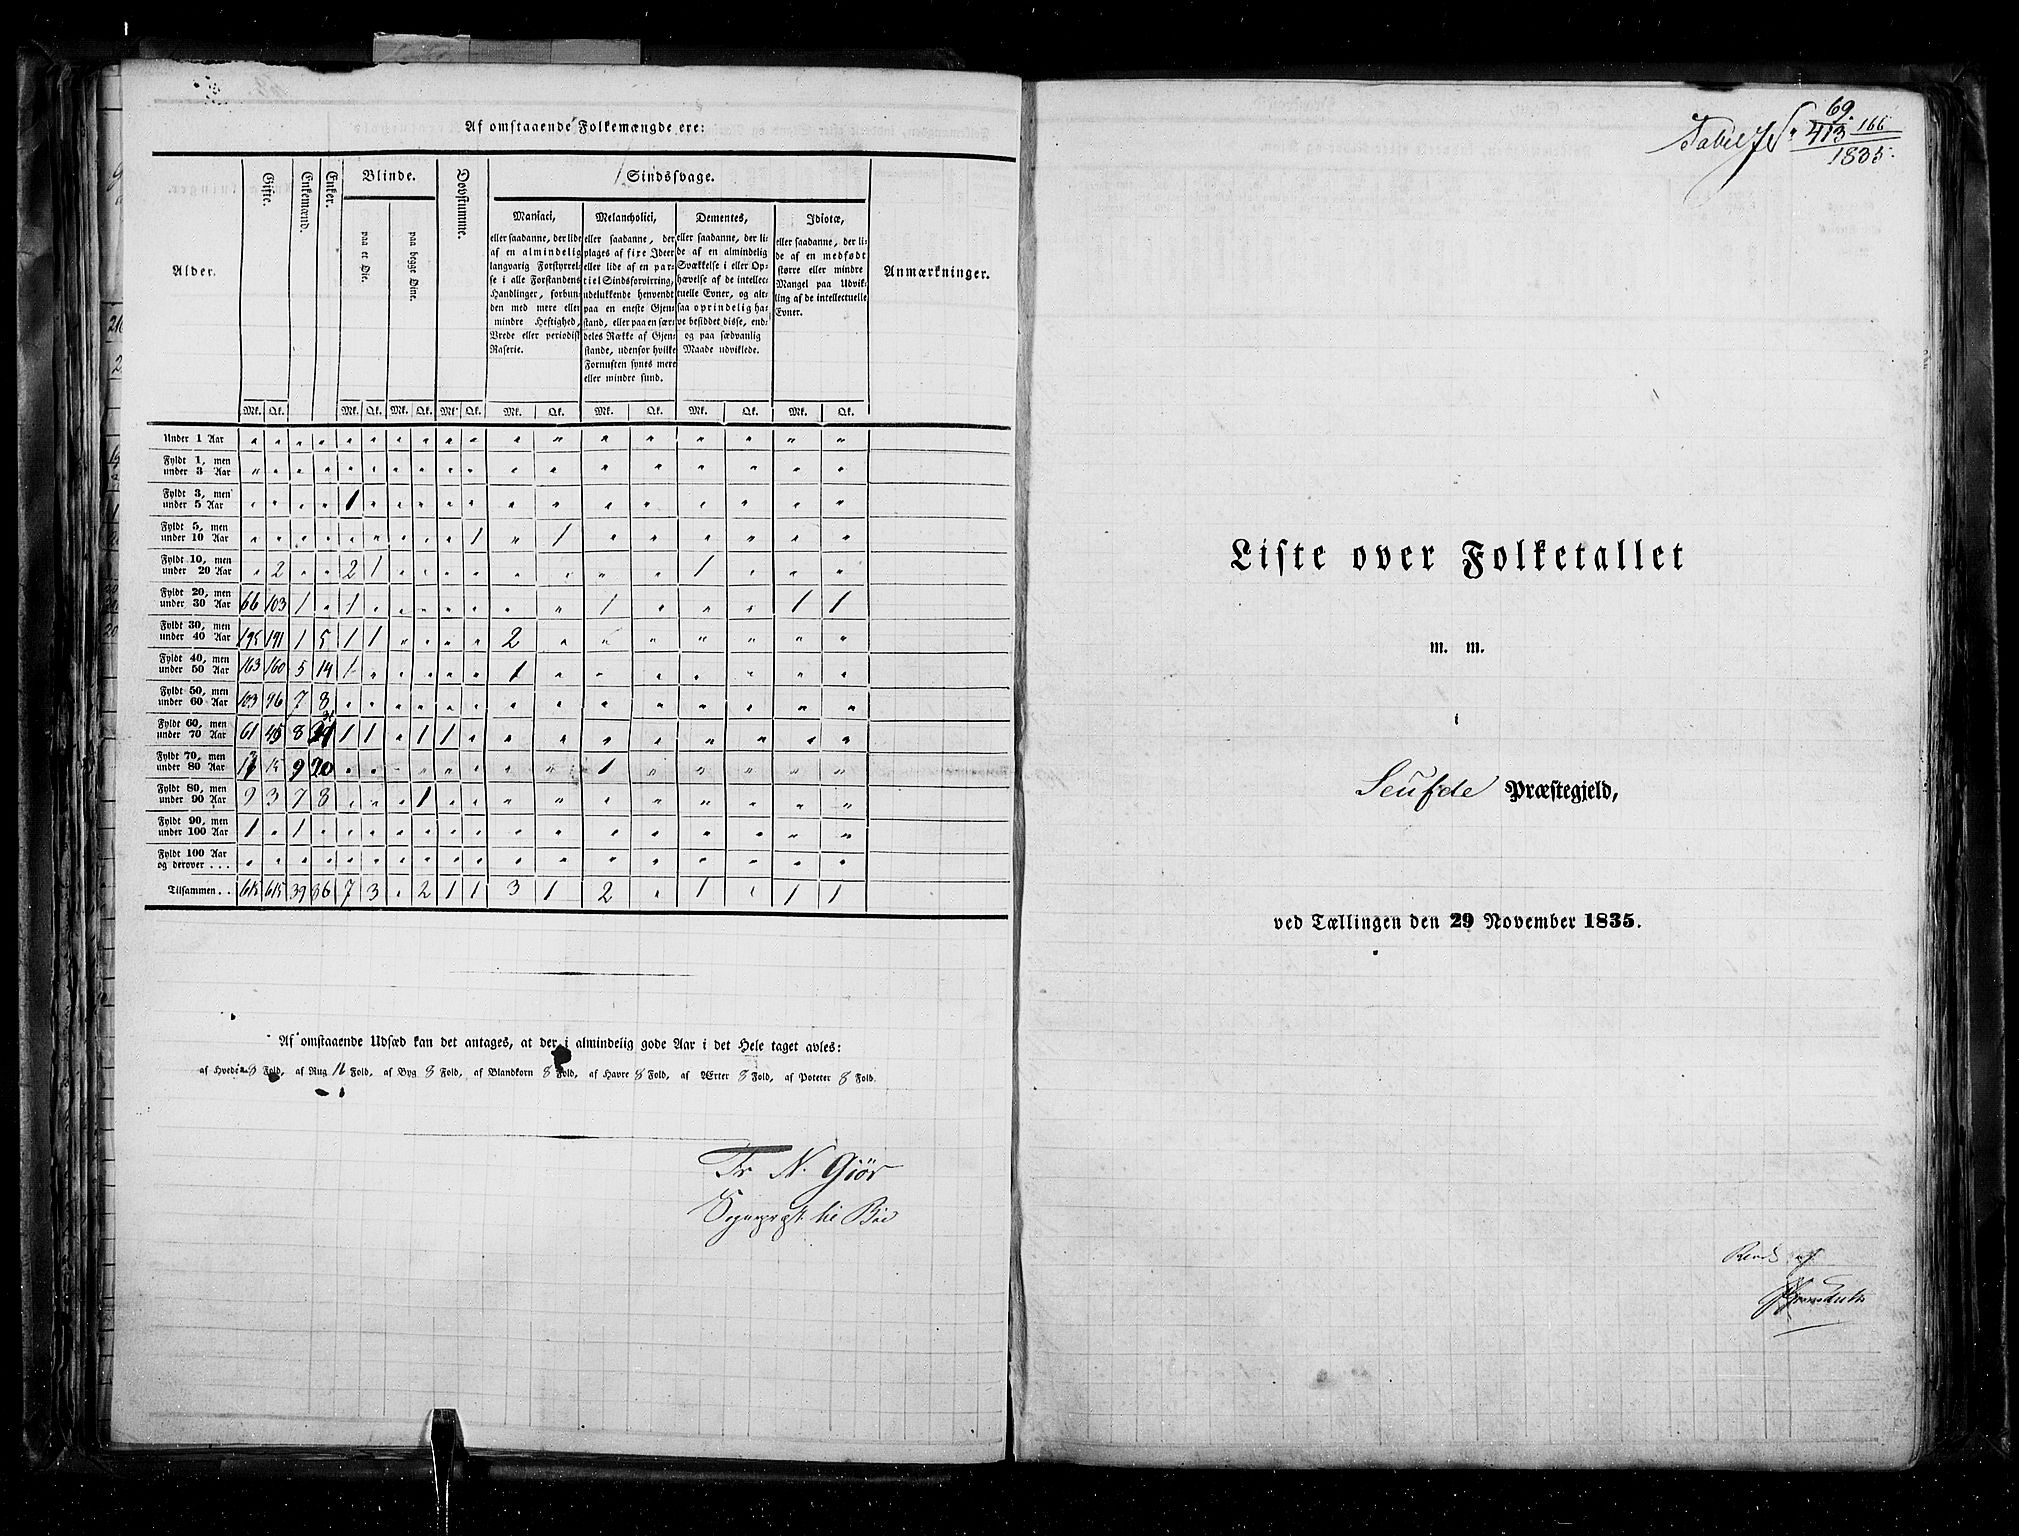 Af omstaaende Folkemængde ere:
Alder. Gifte. Enkemænd. Enker. Blinde. Døvstumme. Sindssvage. Anmærkninger.
paa et Øie. paa begge Øine.
Maniaci,
eller saadanne, der lide
af en almindelig
langvarig Forstyrrel-
se i alle Forstandens
Handlinger, forbun-
den med mere eller
mindre Heftighed,
Vrede eller periodisk
Raserie.
Melancholici,
eller saadanne, der
plages af fixe Ideer
eller lide af en par-
tiel Sindsforvirring,
udelukkende henvendt
paa en eneste Gjen-
stand, eller paa en sær-
deles Række af Gjen-
stande, udenfor hvilke
Fornuften synes mere
eller mindre sund.
Dementes,
eller saadanne, der li-
de af en almindelig
Svækkelse i eller Op-
hævelse af de intellec-
tuelle Evner, og alt-
saa oprindelig ha-
ve besiddet disse, end-
og paa sædvanlig
Maade udviklede.
Idiotæ,
eller saadanne, der li-
de af en medfødt
større eller mindre
Mangel paa Udvik-
ling af de intellectuelle
Evner.
Mk. Qk. Mk. Qk. Mk. Qk. Mk. Qk. Mk. Qk. Mk. Qk. Mk. Qk. Mk. Qk.
Under 1 Aar " " " " " " " " " " " " " " " " " "
Fyldt 1, men
under 3 Aar " " " " " " " " " " " " " " " " " "
Fyldt 3, men
under 5 Aar " " " " 1 " " " " " " " " " " " " "
Fyldt 5, men
under 10 Aar " " " " " " " " " 1 " 1 " " " " " "
Fyldt 10, men
under 20 Aar " 2 " " 2 1 " " " " " " " " 1 " " "
Fyldt 20, men
under 30 Aar 66 103 1 " 1 " " " " " " " 1 " " " 1 1
Fyldt 30, men
under 40 Aar 195 191 1 5 1 1 " " " " 2 " " " " " " "
Fyldt 40, men
under 50 Aar 163 160 5 14 1 " " " " " 1 " " " " " " "
Fyldt 50, men
under 60 Aar 103 96 7 8 " " " " " " " " " " " " " "
Fyldt 60, men
under 70 Aar 61 45 8 31 1 1 " 1 1 " " " " " " " " "
Fyldt 70, men
under 80 Aar 15 9 20 " " " " " " " " 1 " " " " "
Fyldt 80, men
under 90 Aar 9 3 7 8 " " " 1 " " " " " " " " " "
Fyldt 90, men
under 100 Aar 1 " 1 " " " " " " " " " " " " " " "
Fyldt 100 Aar
og derover . . . " " " " " " " " " " " " " " " " " "
Tilsammen . . 615 615 39 86 7 3 " 2 1 1 3 1 2 " 1 " 1 1
Af omstaaende Udsæd kan det antages, at der i almindelig gode Aar i det Hele taget avles:
af Hvede 8 Fold, af Rug 16 Fold, af Byg 8 Fold, af Blandkorn 8 Fold, af Havre 8 Fold, af Ærter 8 Fold, af Poteter 8 Fold.
Fr N. Giör
Sognepræst til Böe
69.
Tabel No 413 166
1835.
Liste over Folketallet
m. m.
i
Seufde Præstegjeld,
ved Tællingen den 29 November 1835.